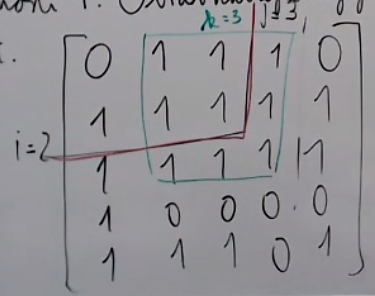 k=3 j=3,
0 1 1 1 0
1 1 1 1 1
i=2
1 1 1 1 1
1 0 0 0 0
1 1 1 0 1